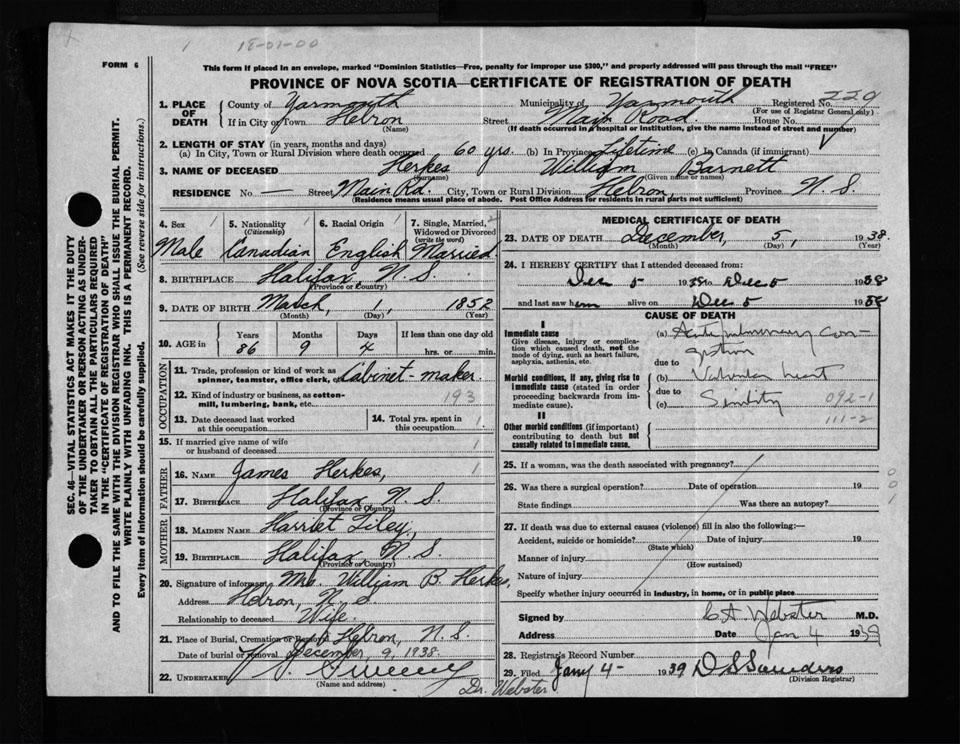 18-01-00
FORM 6
This form if placed in an envelope, marked "Dominion Statistics—Free, penalty for improper use $300," and properly addressed will pass through the mail "FREE"
PROVINCE OF NOVA SCOTIA—CERTIFICATE OF REGISTRATION OF DEATH
SEC. 46—VITAL STATISTICS ACT MAKES IT THE DUTY
OF THE UNDERTAKER OR PERSON ACTING AS UNDER-
TAKER TO OBTAIN ALL THE PARTICULARS REQUIRED
IN THE "CERTIFICATE OF REGISTRATION OF DEATH"
AND TO FILE THE SAME WITH THE DIVISION REGISTRAR WHO SHALL ISSUE THE BURIAL PERMIT.
WRITE PLAINLY WITH UNFADING INK. THIS IS A PERMANENT RECORD.
Every item of information should be carefully supplied. (See reverse side for instructions.)
1. PLACE OF DEATH County of Yarmouth Municipality of Yarmouth Registered No. 229
(For use of Registrar General only)
If in City or Town Hebron Street Main Road House No.
(Name) (If death occurred in a hospital or institution, give the name instead of street and number)
2. LENGTH OF STAY (in years, months and days)
(a) In City, Town or Rural Division where death occurred 60 yrs. (b) In Province Lifetime (c) In Canada (if immigrant)
3. NAME OF DECEASED Herkes William Barnett
(Surname) (Given name or names)
RESIDENCE No. — Street Main Rd. City, Town or Rural Division Hebron, Province N. S.
(Residence means usual place of abode. Post Office Address for residents in rural parts not sufficient)
4. Sex 5. Nationality (Citizenship) 6. Racial Origin 7. Single, Married, Widowed or Divorced (write the word)
Male Canadian English Married.
8. BIRTHPLACE Halifax N. S.
(Province or Country)
9. DATE OF BIRTH March, 1, 1852
(Month) (Day) (Year)
10. AGE in Years Months Days If less than one day old
86 9 4 hrs. or min.
OCCUPATION
11. Trade, profession or kind of work as spinner, teamster, office clerk, etc. Cabinet-maker.
12. Kind of industry or business, as cotton-mill, lumbering, bank, etc. 193
13. Date deceased last worked at this occupation 14. Total yrs. spent in this occupation
15. If married give name of wife or husband of deceased
FATHER
16. NAME James Herkes,
17. BIRTHPLACE Halifax N. S.
(Province or Country)
MOTHER
18. MAIDEN NAME Harriet Tiley,
19. BIRTHPLACE Halifax, N. S.
(Province or Country)
20. Signature of informant Mrs. William B. Herkes,
Address Hebron, N. S
Relationship to deceased Wife.
21. Place of Burial, Cremation or Removal Hebron, N. S.
Date of burial or removal December, 9, 1938.
22. UNDERTAKER Sweeney
(Name and address)
MEDICAL CERTIFICATE OF DEATH
23. DATE OF DEATH December, 5, 1938.
(Month) (Day) (Year)
24. I HEREBY CERTIFY that I attended deceased from:
Dec 5 1938 to Dec 5 1938
and last saw him alive on Dec 5 1938
CAUSE OF DEATH
I
Immediate cause
Give disease, injury or complication which caused death, not the mode of dying, such as heart failure, asphyxia, asthenia, etc.
(a) Acute pulmonary con-
gestion
due to
Morbid conditions, if any, giving rise to immediate cause (stated in order proceeding backwards from immediate cause).
(b) Valvular heart
due to
(c) Senility 092-1
111-2
II
Other morbid conditions (if important) contributing to death but not causally related to immediate cause.
25. If a woman, was the death associated with pregnancy?
26. Was there a surgical operation? Date of operation 19
State findings Was there an autopsy?
001
27. If death was due to external causes (violence) fill in also the following:—
Accident, suicide or homicide? Date of injury 19
(State which)
Manner of injury
(How sustained)
Nature of injury
Specify whether injury occurred in industry, in home, or in public place
Signed by C A Webster M.D.
Address Date Jan 4 1939
28. Registrar's Record Number
29. Filed Jany 4- 1939 D S Saunders
(Division Registrar)
Dr. Webster